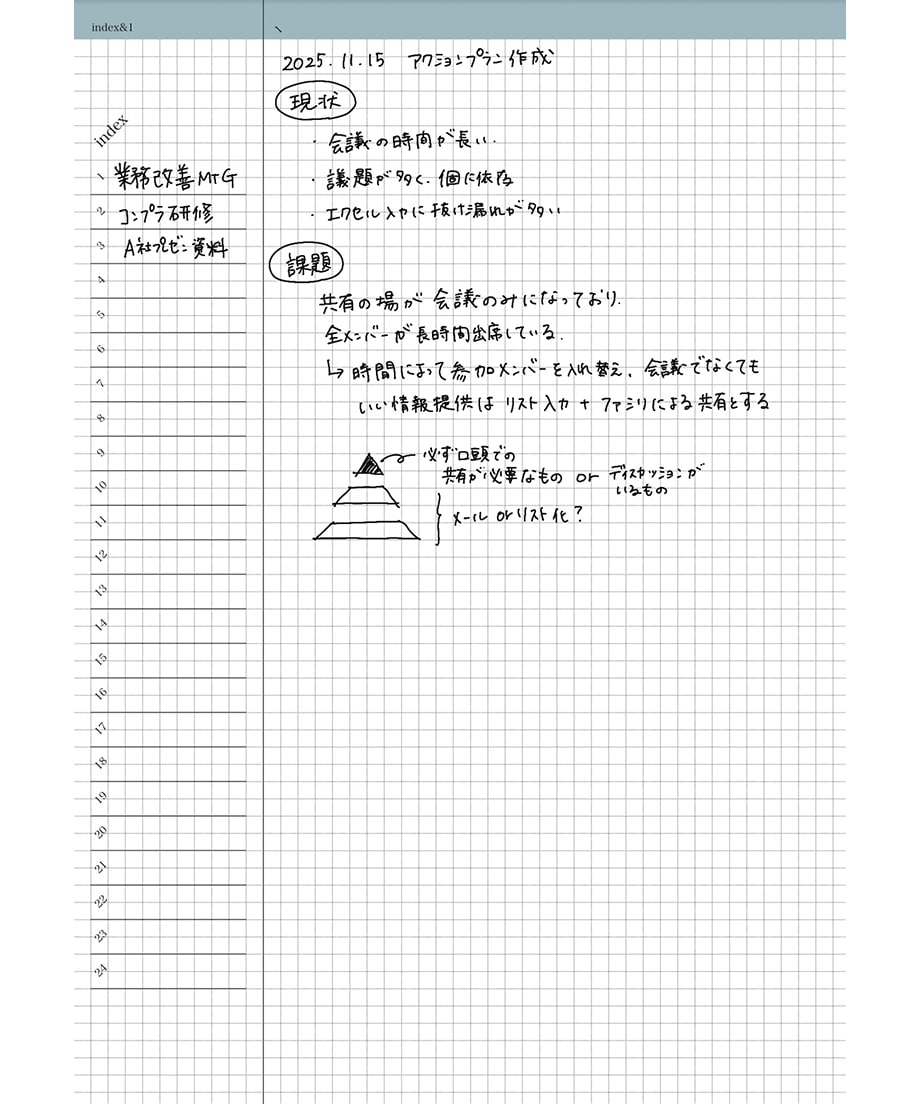 index&1
1
index
1 業務改善MTG
2 コンプラ研修
3 A社プレゼン資料
4
5
6
7
8
9
10
11
12
13
14
15
16
17
18
19
20
21
22
23
24
2025.11.15 アクションプラン作成
現状
・会議の時間が長い.
・議題が多く、個に依存
・エクセル入力に抜け漏れが多い
課題
共有の場が会議のみになっており、
全メンバーが長時間出席している.
↳時間によって参加メンバーを入れ替え、会議でなくても
いい情報提供はリスト入力+ファミリによる共有とする
必ず口頭での
共有が必要なもの or ディスカッションが
いるもの
メール or リスト化?